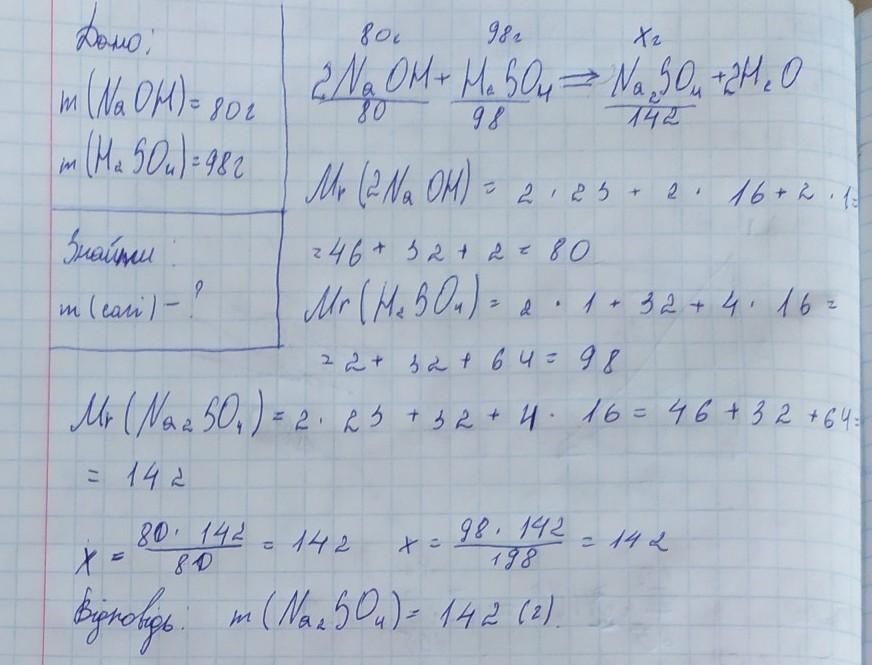 Дано:
m(NaOH) = 80г
m(H₂SO₄) = 98г
Знайти:
m(солі) - ?
80г 98г Xг
2NaOH + H₂SO₄ ⇒ Na₂SO₄ + 2H₂O
80 98 142
Mr(2NaOH) = 2 · 23 + 2 · 16 + 2 · 1 =
= 46 + 32 + 2 = 80
Mr(H₂SO₄) = 2 · 1 + 32 + 4 · 16 =
= 2 + 32 + 64 = 98
Mr(Na₂SO₄) = 2 · 23 + 32 + 4 · 16 = 46 + 32 + 64 =
= 142
X = 80 · 142 / 80 = 142 X = 98 · 142 / 198 = 142
Відповідь: m(Na₂SO₄) = 142 (г).